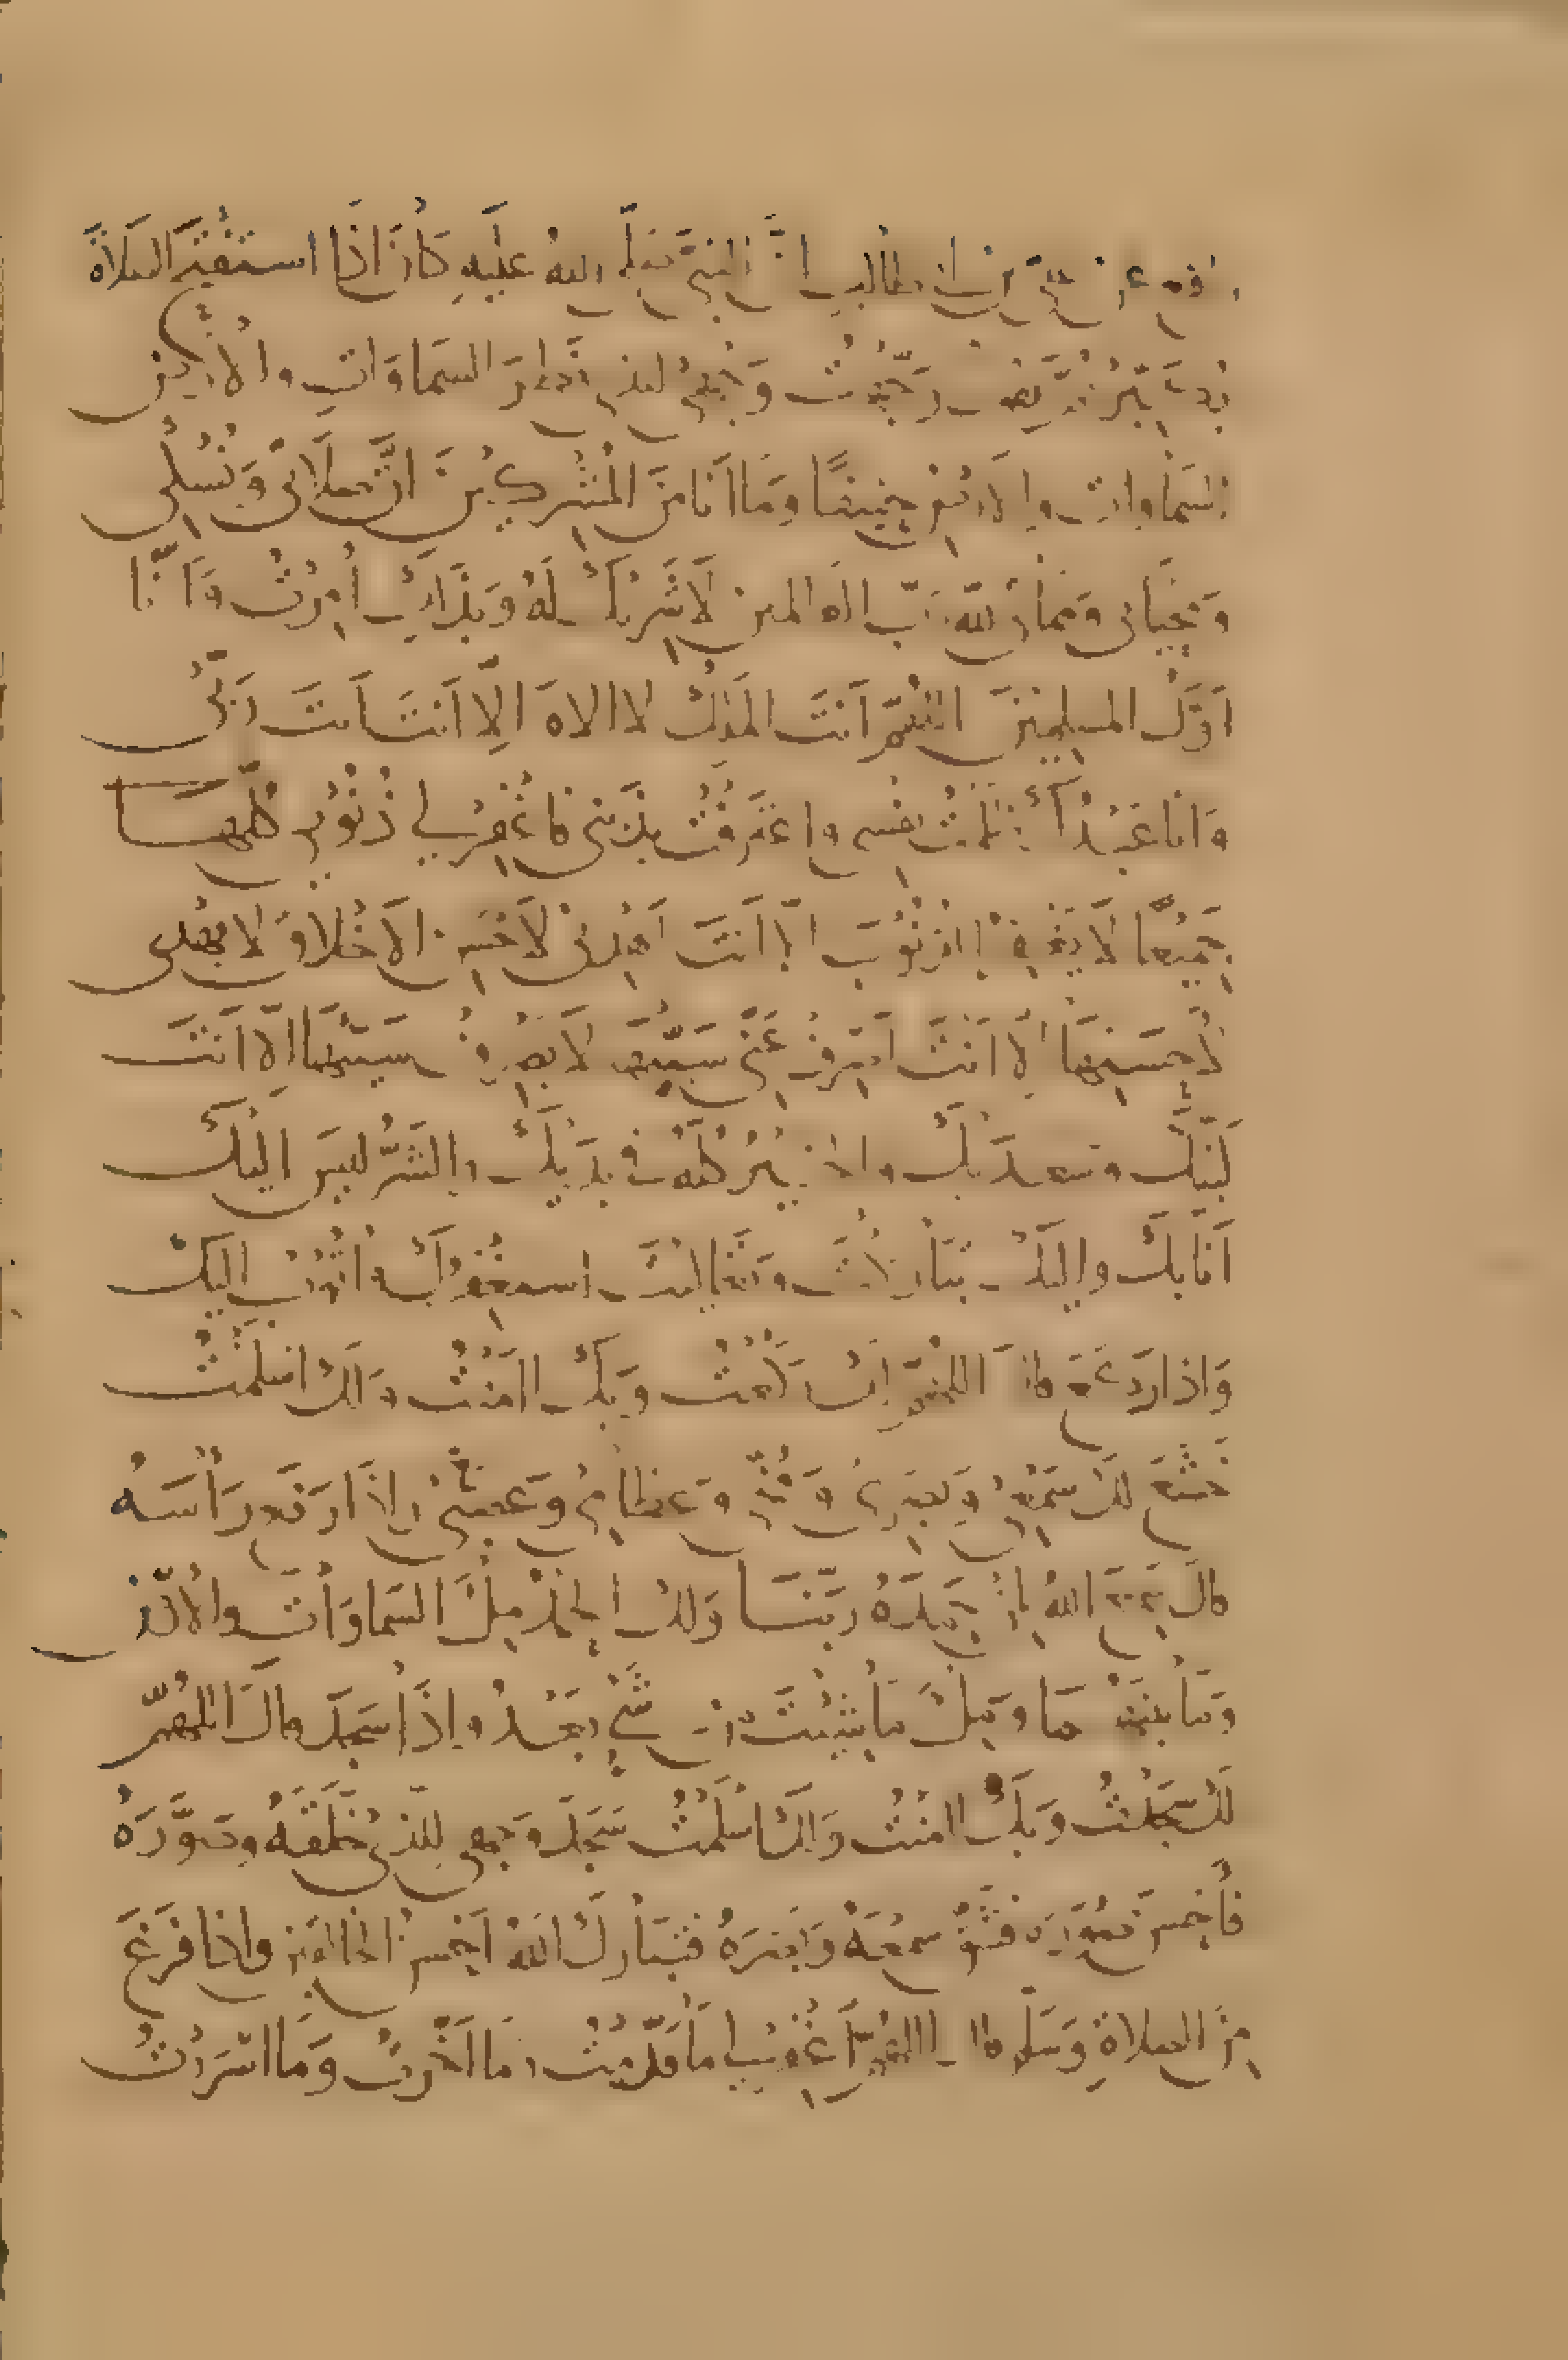 رافع عن علي ابن ابي طالب ان النبي صلى الله عليه كان اذا استفتح الصلاة
يكبر ثم يقول وجهت وجهي للذي فطر السماوات والارض
السماوات والارض حنيفا وما انا من المشركين ان صلاتي ونسكي
ومحياي ومماتي لله رب العالمين لا شريك له وبذلك امرت وانا
اول المسلمين اللهم انت الملك لا الاه الا انت انت ربي
وانا عبدك ظلمت نفسي واعترفت بذنبي فاغفر لي ذنوبي كلها
جميعا لا يغفر الذنوب الا انت اهدني لاحسن الاخلاق لا يهدي
لاحسنها الا انت اصرف عني سيئها لا يصرف سيئها الا انت
لبيك وسعديك والخير كله في يديك والشر ليس اليك
انا بك واليك تباركت وتعاليت استغفرك واتوب اليك
واذا ركع قال اللهم لك ركعت وبك اامنت ولك اسلمت
خشع لك سمعي وبصري ومخي وعظامي وعصبي واذا رفع رأسه
قال سمع الله لمن حمده ربنا ولك الحمد ملء السماوات والارض
وما بينهما وملء ما شئت من شيء بعد واذا سجد قال اللهم
لك سجدت وبك اامنت ولك اسلمت سجد وجهي للذي خلقه وصوره
فأحسن صوره فشق سمعه وبصره فتبارك الله احسن الخالقين واذا فرغ
من الصلاة وسلم قال اللهم اغفر لي ما قدمت وما اخرت وما اسررت